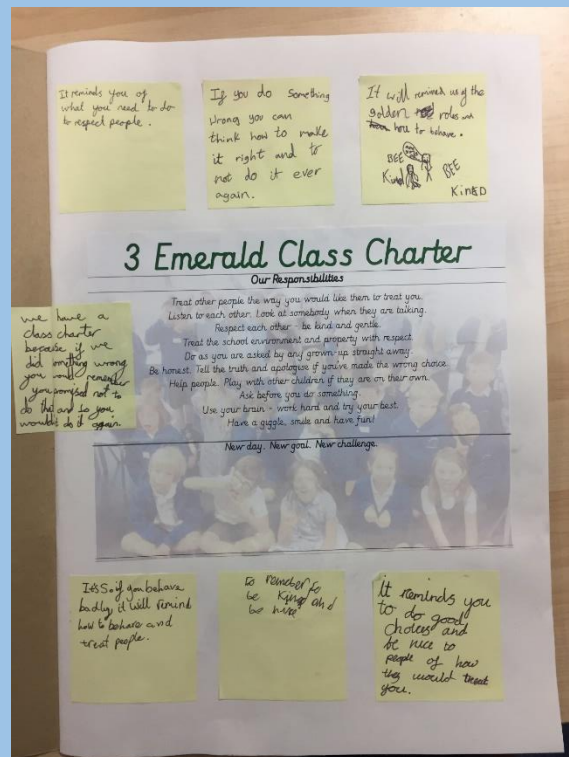 It reminds you of
what you need to do
to respect people.
If you do Something
wrong you can
think how to make
it right and to
not do it ever
again.
It will remined us of the
golden roles and
how to behave.
BEE
Kind
BEE
KinED
3 Emerald Class Charter
Our Responsibilities
Treat other people the way you would like them to treat you.
Listen to each other. Look at somebody when they are talking.
Respect each other - be kind and gentle.
Treat the school environment and property with respect.
Do as you are asked by any grown-up straight away.
Be honest. Tell the truth and apologise if you've made the wrong choice.
Help people. Play with other children if they are on their own.
Ask before you do something.
Use your brain - work hard and try your best.
Have a giggle, smile and have fun!
New day. New goal. New challenge.
we have a
class charter
because if we
did omething wrong
you will remember
you promised not to
do that and so you
wouldn't do it again.
It's So if you behave
badly, it will remind
how to behave and
treat people.
to remeber to
be Kind and
be nice
It reminds you
to do good
choices and
be nice to
people of how
they would treat
you.